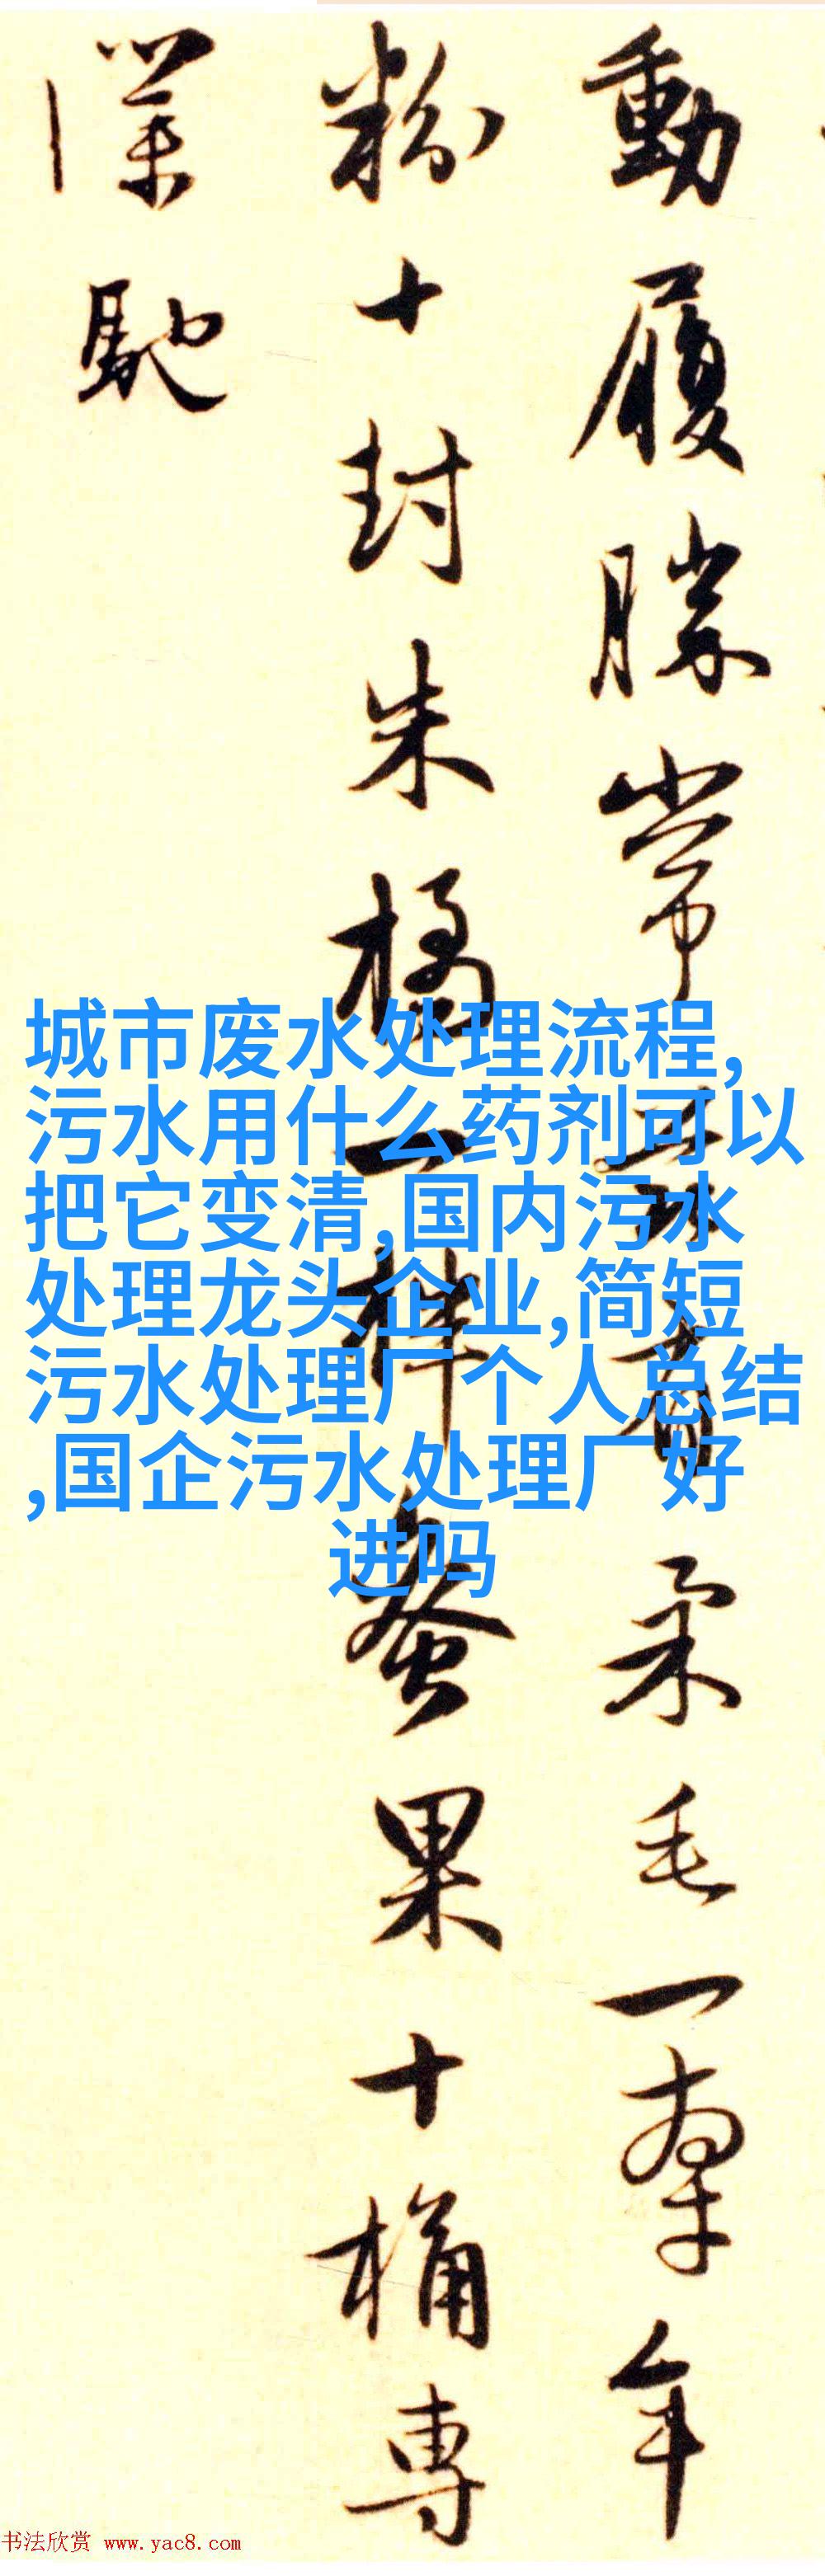 動履勝常
柔毛一牽年
粉十封朱橘一
果十桶專
馳
城市废水处理流程,
污水用什么药剂可以
把它变清,国内污水
处理龙头企业,简短
污水处理厂个人总结
,国企污水处理厂好
进吗
书法欣赏 www.yac8.com